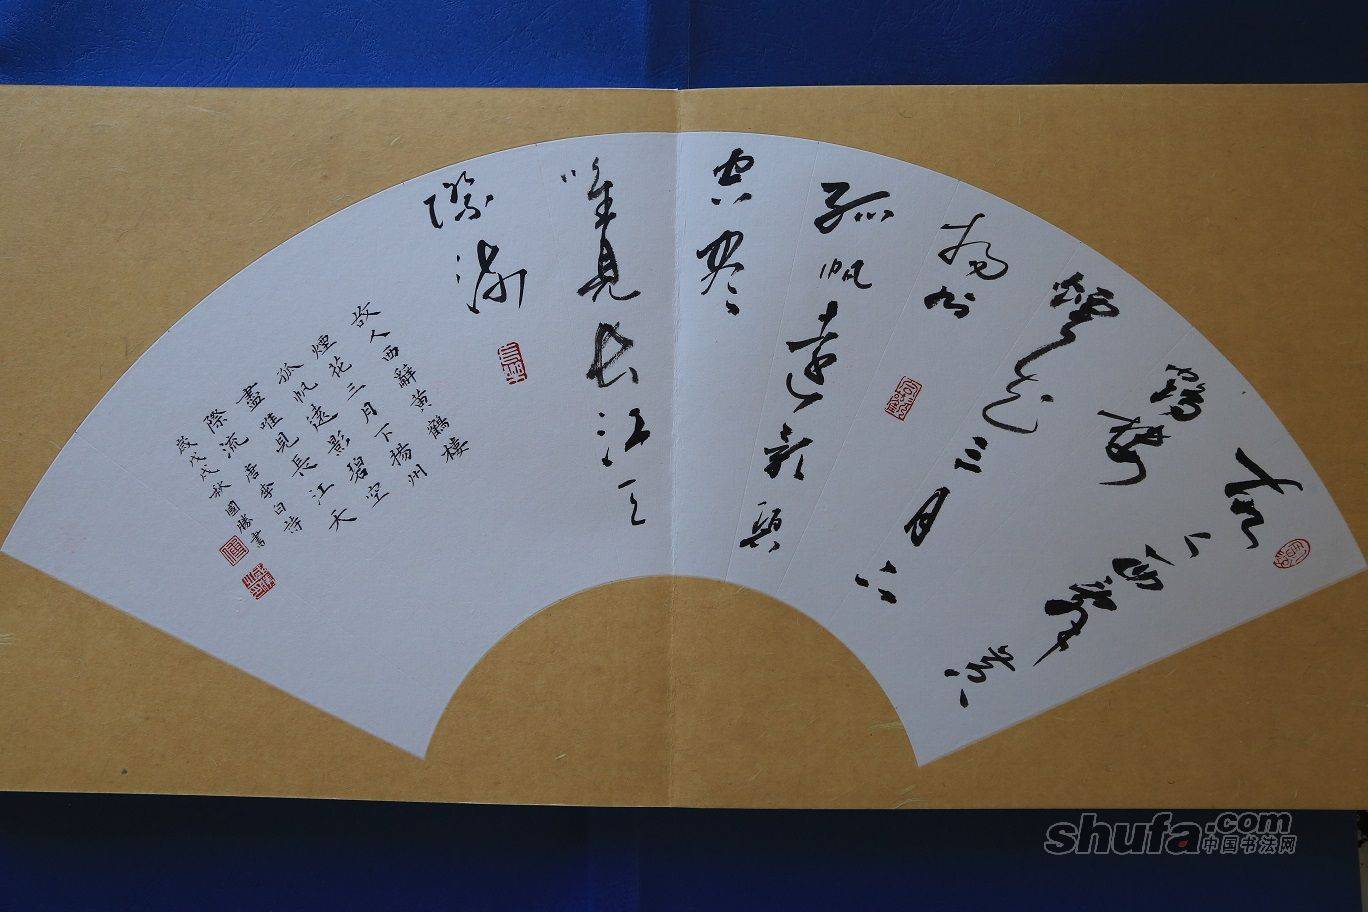 故人西辭黄
鶴樓
煙花三月下
揚州
孤帆遠影碧
空盡
唯見長江天
際流
故人西辭黄鶴楼
煙花三月下揚州
孤帆遠影碧空
盡唯見長江天
際流 唐李白詩
歲戊戌秋國勝書
shufa.com
中国书法网